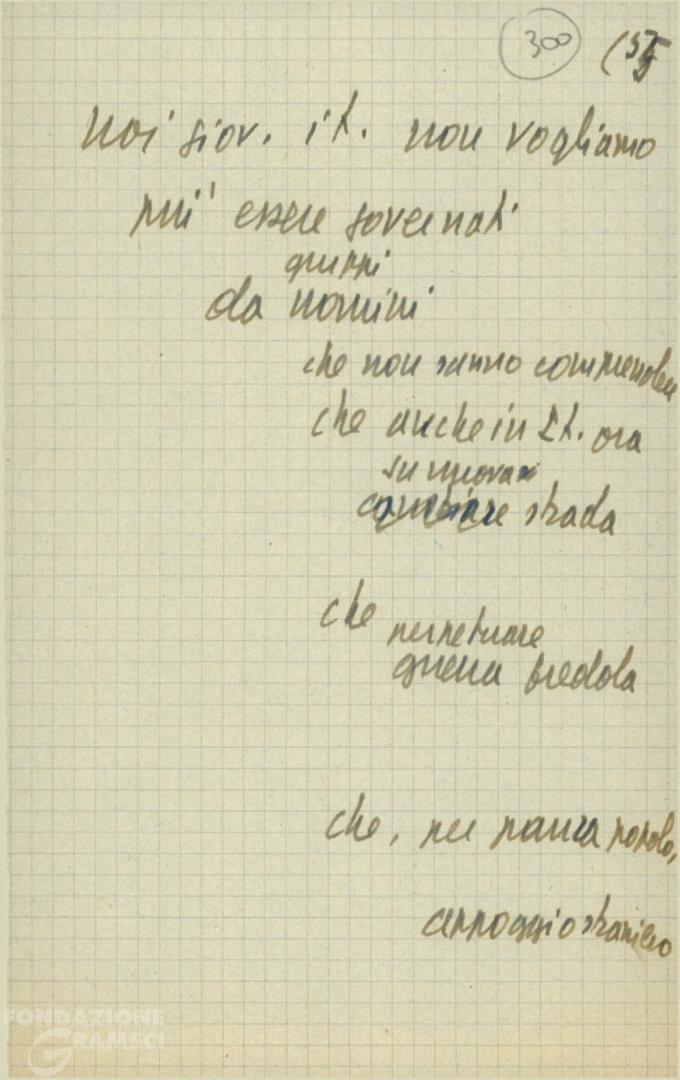 300 (35
noi giov. it. non vogliamo
più essere governati
gruppi
da uomini
che non sanno comprendere
che anche in It. ora
su nuova
cambiare strada
che perpetuare
guerra fredda
che, per paura popolo,
appoggio straniero
FONDAZIONE
GRAMSCI